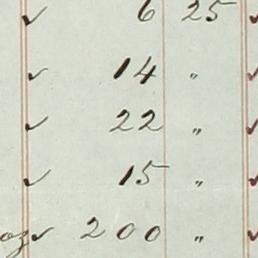 ✓ 6 25 ✓
✓ 14 " ✓
✓ 22 " ✓
✓ 15 " ✓
oz ✓ 200 " ✓